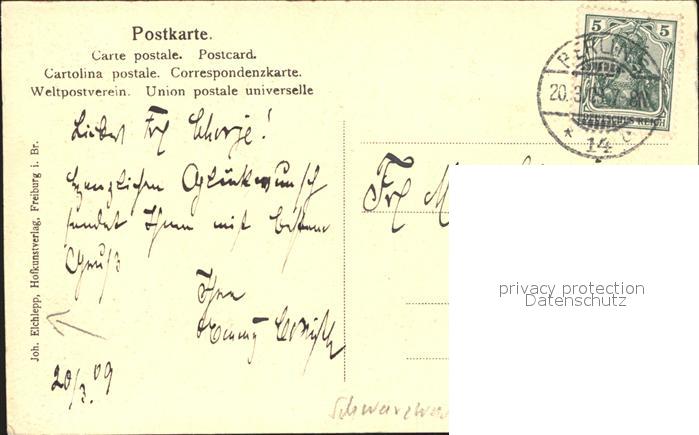 Postkarte.
Carte postale. Postcard.
Cartolina postale. Correspondenzkarte.
Weltpostverein. Union postale universelle
5 5
BERLIN
20.3.09. 7-8N
DEUTSCHES REICH
* 14 c
Liebes Frl
herzlichen Glückwunsch
sendet Ihnen mit bestem
Gruß
Ihre
20/3. 09
Frl M
Joh. Elchlepp, Hofkunstverlag, Freiburg i. Br.
privacy protection
Datenschutz
Schwarzwa